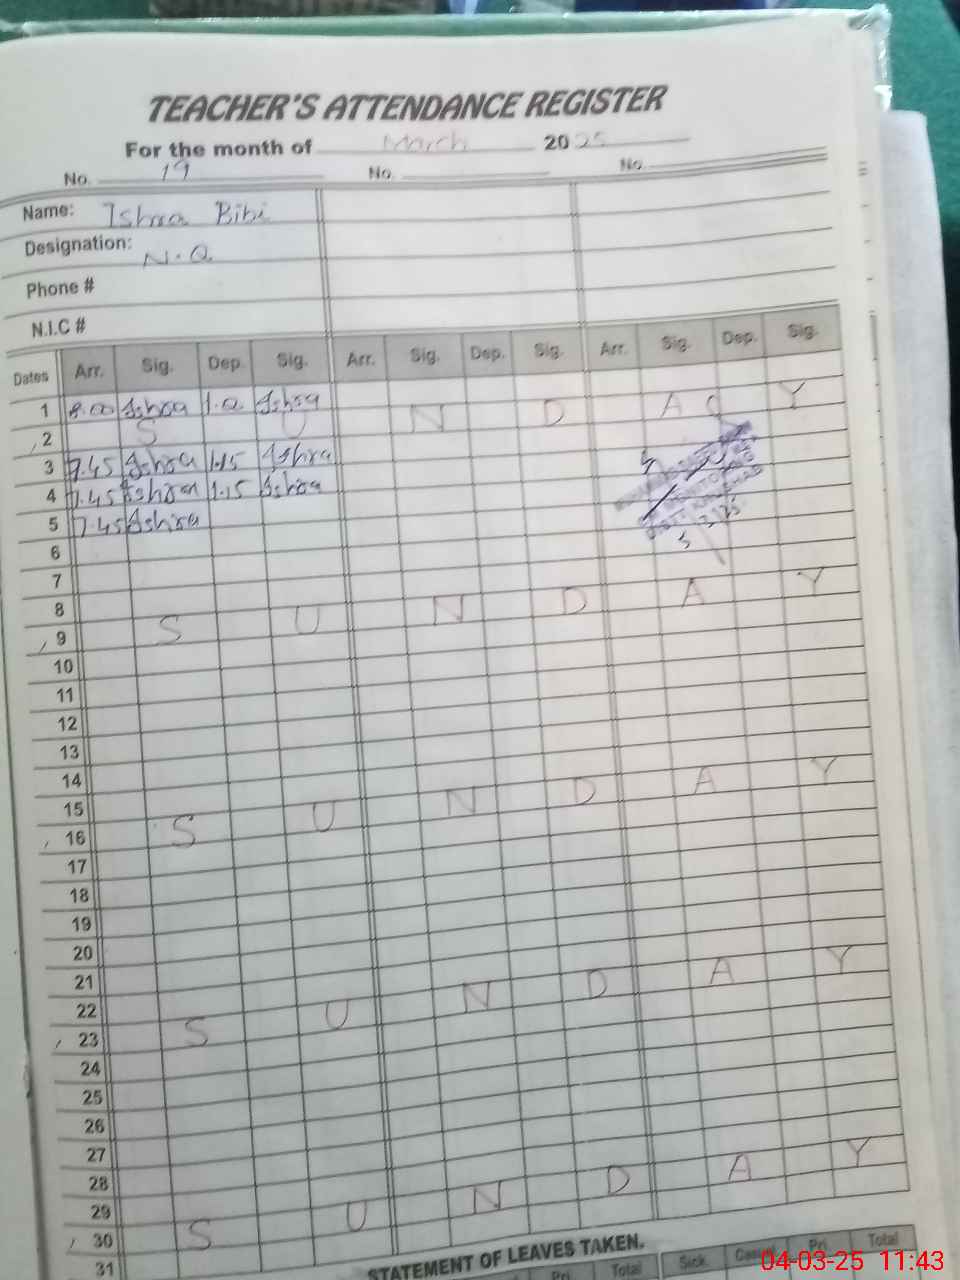 TEACHER'S ATTENDANCE REGISTER
For the month of March 2025
No. 19 No. No.
Name: Ishra Bibi
Designation: N.Q
Phone #
N.I.C #
Dates Arr. Sig. Dep. Sig. Arr. Sig. Dep. Sig. Arr. Sig. Dep. Sig.
1 8.00 Ishra 1.0 Ishra
2 S U N D A Y
3 7.45 Ishra 1.15 Ishra
4 7.45 Ishra 1.15 Ishra
5 7.45 Ishra
6
7
8
9 S U N D A Y
10
11
12
13
14
15
16 S U N D A Y
17
18
19
20
21
22
23 S U N D A Y
24
25
26
27
28
29
30 S U N D A Y
31
STATEMENT OF LEAVES TAKEN.
Pri. Total Sick. Casual Pri. Total
04-03-25 11:43